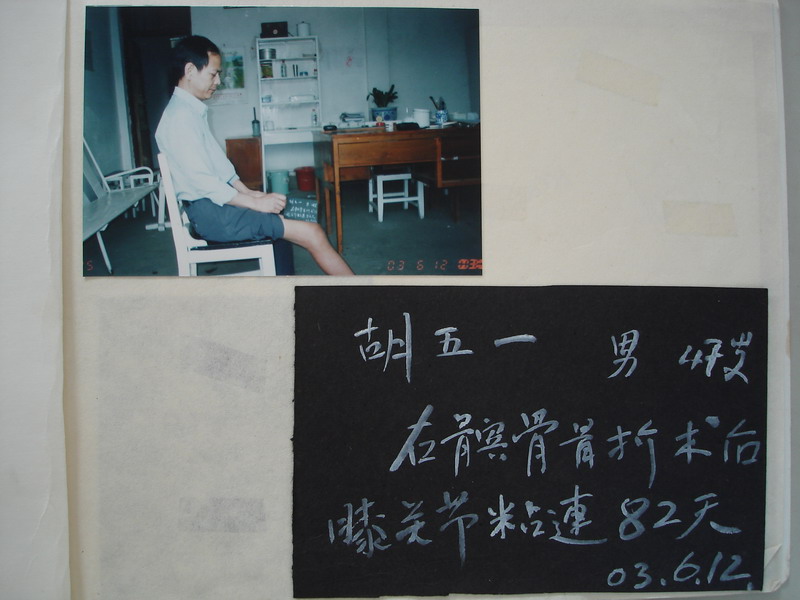 03 6 12
胡五一 男 47岁
右髌骨骨折术后
膝关节粘連82天
03.6.12.